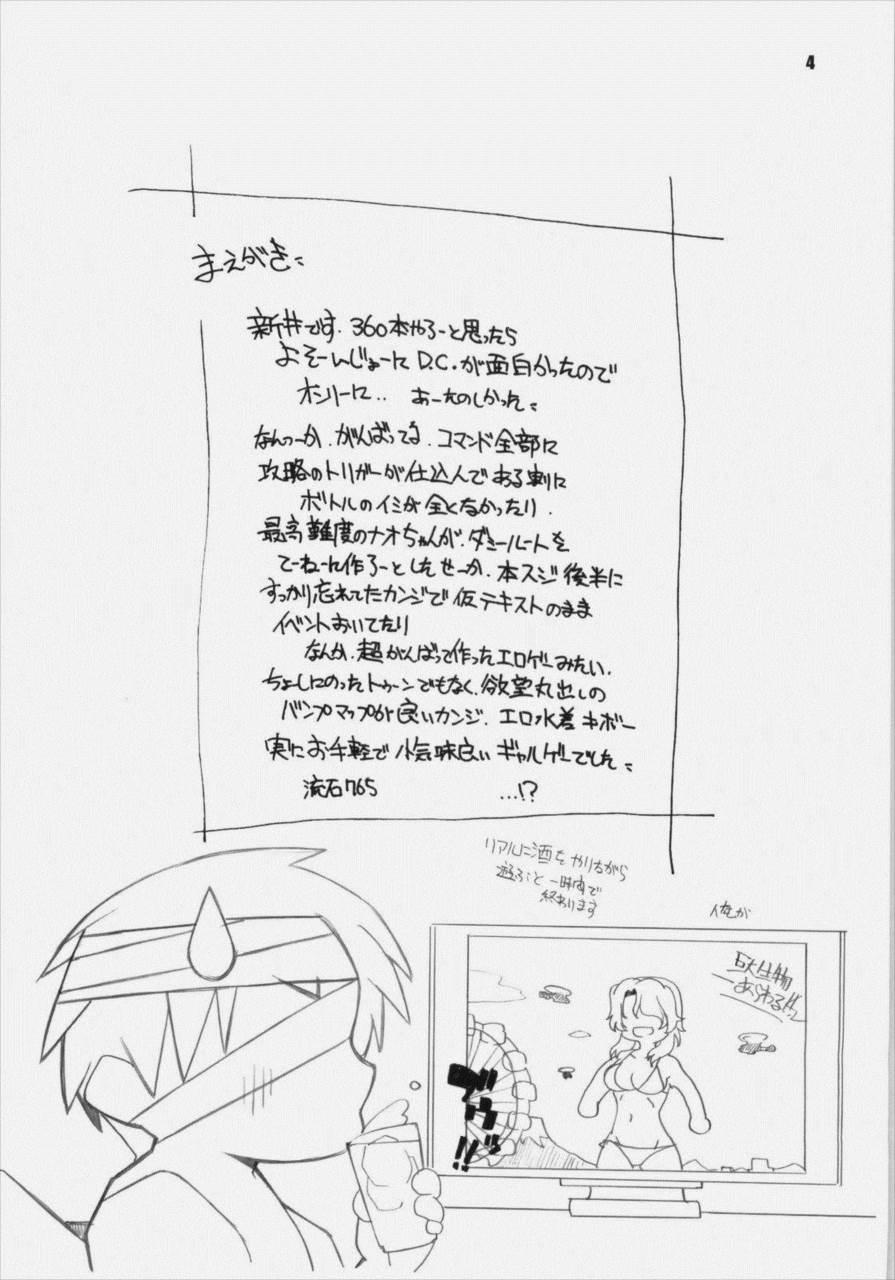 4
まえがき:
新井です. 360本やろーと思ったら
よそーんじょーに D.C.が面白かったので
オンリーに.. あーたのしかった:
なんつーか.がんばってる.コマンド全部に
攻略のトリガーが仕込んである割に
ボトルのイミが全くなかったり.
最高難度のナオちゃんが.ダミールートを
てーねーに作ろーとしたせーか.本スジ後半に
すっかり忘れてたカンジで仮テキストのまま
イベントおいてたり
なんか.超がんばって作ったエロゲーみたい.
ちょーしにのったトゥーンでもなく.欲望丸出しの
バンプマップが良いカンジ. エロ水着キボー
実にお手軽で小気味良いギャルゲーでした:
流石765 ...!?
リアルに酒をやりながら
遊ぶと一時間で
終わります
俺が
あらわる!!